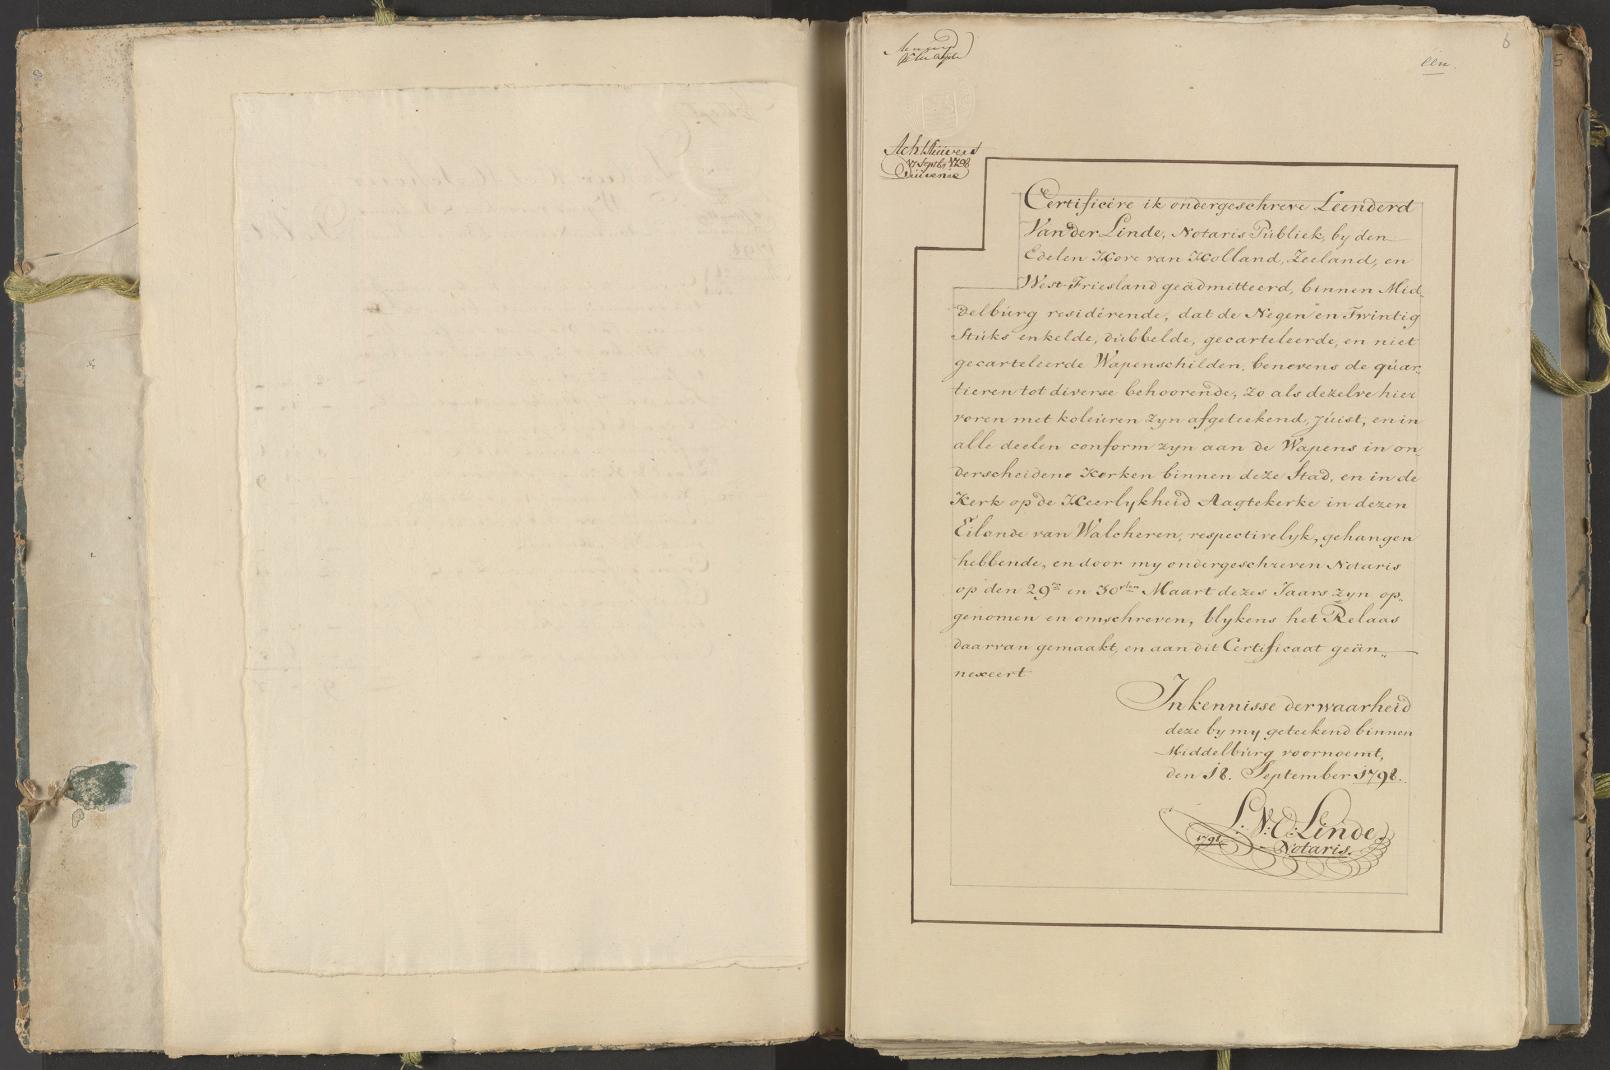 6
één.
Acht Stuivers
17 Septbr. 1798
Certificére ik ondergeschreve Leenderd
Van der Linde, Notaris Publiek, by den
Edelen Hove van Holland, Zeeland, en
West-Friesland geädmitteerd, binnen Mid„
delburg residérende, dat de Negen en Twintig
Stuks enkelde, dubbelde, gecarteleerde, en niet
gecarteleerde Wapenschilden, benevens de quar„
tieren tot diverse behoorende, zo als dezelve hier
voren met koleuren zyn afgeteekend, juist, en in
alle deelen conform zyn aan de Wapens in on„
derscheidene Kerken binnen deze Stad, en in de
Kerk op de Heerlykheid Aagtekerke in dezen
Eilande van Walcheren, respectivelyk, gehangen
hebbende, en door my ondergeschreven Notaris
op den 29en en 30sten Maart dezes Jaars zyn op„
genomen en omschreven, blykens het Relaas
daarvan gemaakt, en aan dit Certificaat geän„
nexeert
In kennisse der waarheid
deze by my geteekend binnen
Middelburg voornoemt,
den 18. September 1798.
L: V: D: Linde
1798. Notaris.